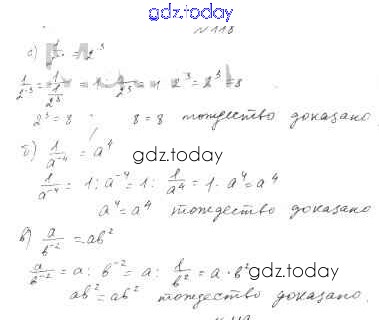 gdz.today
N 118
= 2³
2³ = 8 8 = 8 тождество доказано
б) 1/a⁻⁴ = a⁴
gdz.today
1/a⁻⁴ = 1 : a⁻⁴ = 1 : 1/a⁴ = 1 · a⁴ = a⁴
a⁴ = a⁴ тождество доказано
в) a/b⁻² = ab²
a/b⁻² = a : b⁻² = a : 1/b² = a · b² gdz.today
ab² = ab² тождество доказано.